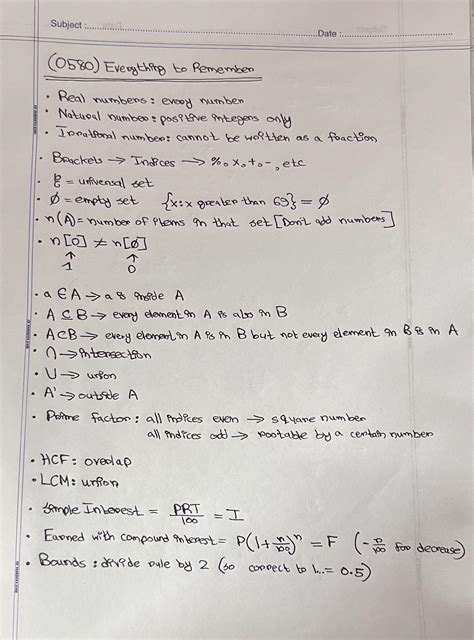 Subject :
Date :
(0580) Everything to Remember
• Real numbers: every number
• Natural number: positive integers only
• Irrational number: cannot be written as a fraction
• Brackets → Indices → %, x, +, -, etc
• ξ = universal set
• ∅ = empty set {x: x greater than 69} = ∅
• n(A) = number of items in that set [Don't add numbers]
• n[0] ≠ n[∅]
↑ ↑
1 0
• a ∈ A → a is inside A
• A ⊆ B → every element in A is also in B
• A⊂B → every element in A is in B but not every element in B is in A
• ∩ → intersection
• ∪ → union
• A' → outside A
• Prime factor: all indices even → square number
all indices odd → rootable by a certain number
• HCF: overlap
• LCM: union
• Simple Interest = PRT/100 = I
• Earned with compound interest = P(1+n/100)^n = F (-n/100 for decrease)
• Bounds: divide rule by 2 (so correct to 1... = 0.5)